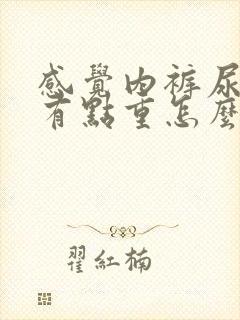 感覺內褲尿
有點重怎麼
翟紅楠